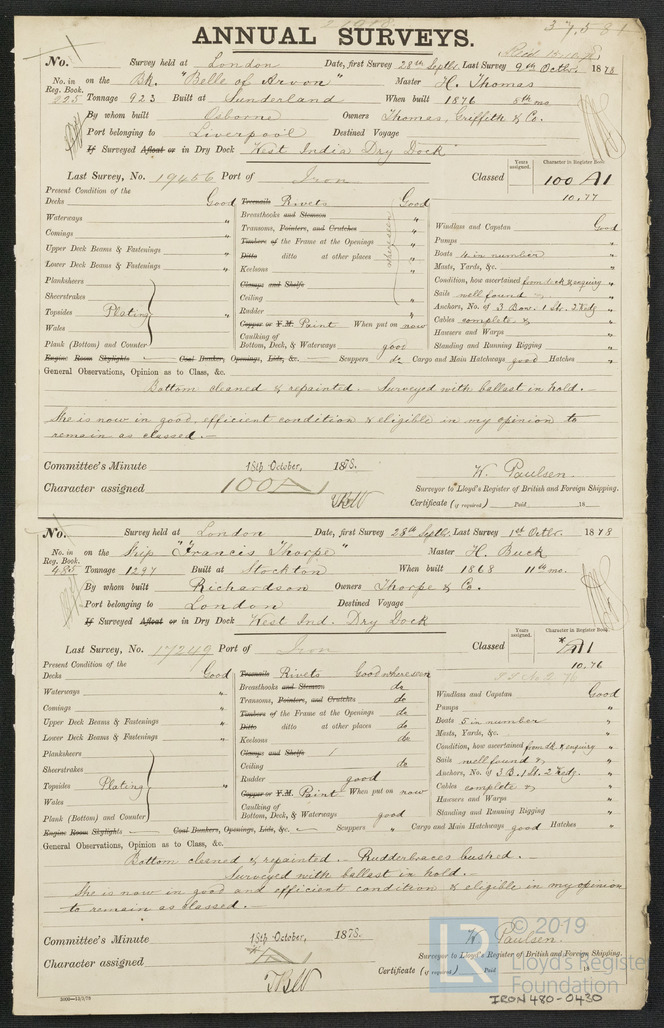 37581
ANNUAL SURVEYS.
No. Survey held at London Date, first Survey 28th Septbr. Last Survey 9th Octbr. 1878
No. in Reg. Book. on the Bk. "Belle of Arvon" Master H. Thomas
225 Tonnage 923 Built at Sunderland When built 1876 8th mo.
By whom built Osborne Owners Thomas, Griffith & Co.
Port belonging to Liverpool Destined Voyage
If Surveyed Afloat or in Dry Dock West India Dry Dock
Last Survey, No. 19456 Port of Iron Classed Years assigned. Character in Register Book 100 A1
10.77
Present Condition of the
Decks Good Treenails Rivets Good
Waterways " Breasthooks and Stemson Windlass and Capstan Good
Comings " Transoms, Pointers, and Crutches Pumps "
Upper Deck Beams & Fastenings " Timbers of the Frame at the Openings Boats 4 in number "
Lower Deck Beams & Fastenings " Ditto ditto at other places Masts, Yards, &c. "
Planksheers Keelsons Condition, how ascertained from deck & enquiry "
Sheerstrakes Clamps and Shelfs Sails well found & "
Topsides Plating " Ceiling " Anchors, No. of 3 Bow. 1 St. 2 Kedg "
Wales Rudder " Cables complete & "
Plank (Bottom) and Counter Copper or Y.M. Paint When put on now Hawsers and Warps "
Caulking of Bottom, Deck, & Waterways good Standing and Running Rigging "
Engine Room Skylights Coal Bunker, Openings, Lids, &c. Scuppers do Cargo and Main Hatchways good Hatches "
General Observations, Opinion as to Class, &c.
Bottom cleaned & repainted. Surveyed with ballast in hold.
She is now in good, efficient condition & eligible in my opinion to
remain as classed.
Committee's Minute 18th October, 1878. W. Paulsen.
Character assigned 100A1 Surveyor to Lloyd's Register of British and Foreign Shipping.
Certificate (if required) Paid 18
No. Survey held at London Date, first Survey 28th Septbr. Last Survey 1st Octbr. 1878
No. in Reg. Book. on the Ship "Francis Thorpe" Master H. Buck
485 Tonnage 1297 Built at Stockton When built 1868 11th mo.
By whom built Richardson Owners Thorpe & Co.
Port belonging to London Destined Voyage
If Surveyed Afloat or in Dry Dock West Ind. Dry Dock
Last Survey, No. 17249 Port of Iron Classed Years assigned. Character in Register Book.
10.76
Present Condition of the
Decks Good Treenails Rivets Good where seen
Waterways " Breasthooks and Stemson do Windlass and Capstan Good
Comings " Transoms, Pointers, and Crutches do Pumps "
Upper Deck Beams & Fastenings " Timbers of the Frame at the Openings do Boats 5 in number "
Lower Deck Beams & Fastenings " Ditto ditto at other places do Masts, Yards, &c. "
Planksheers Keelsons do Condition, how ascertained from dk & enquiry "
Sheerstrakes Clamps and Shelfs Sails well found & "
Topsides Plating " Ceiling do Anchors, No. of 3 B. 1 St. 2 Kedg. "
Wales Rudder good Cables complete & "
Plank (Bottom) and Counter Copper or Y.M. Paint When put on now Hawsers and Warps "
Caulking of Bottom, Deck, & Waterways good Standing and Running Rigging "
Engine Room Skylights Coal Bunkers, Openings, Lids, &c. Scuppers " Cargo and Main Hatchways good Hatches "
General Observations, Opinion as to Class, &c.
Bottom cleaned & repainted. Rudderbraces bushed.
Surveyed with ballast in hold.
She is now in good and efficient condition & eligible in my opinion
to remain as classed.
Committee's Minute 18th October, 1878. W. Paulsen.
Character assigned Surveyor to Lloyd's Register of British and Foreign Shipping.
Certificate (if required) Paid 18
LR © 2019
Lloyd's Register
Foundation
IRON 480-0430